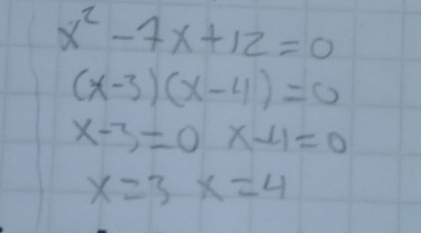 x² - 7x + 12 = 0
(x-3)(x-4) = 0
x-3=0 x-4=0
x=3 x=4